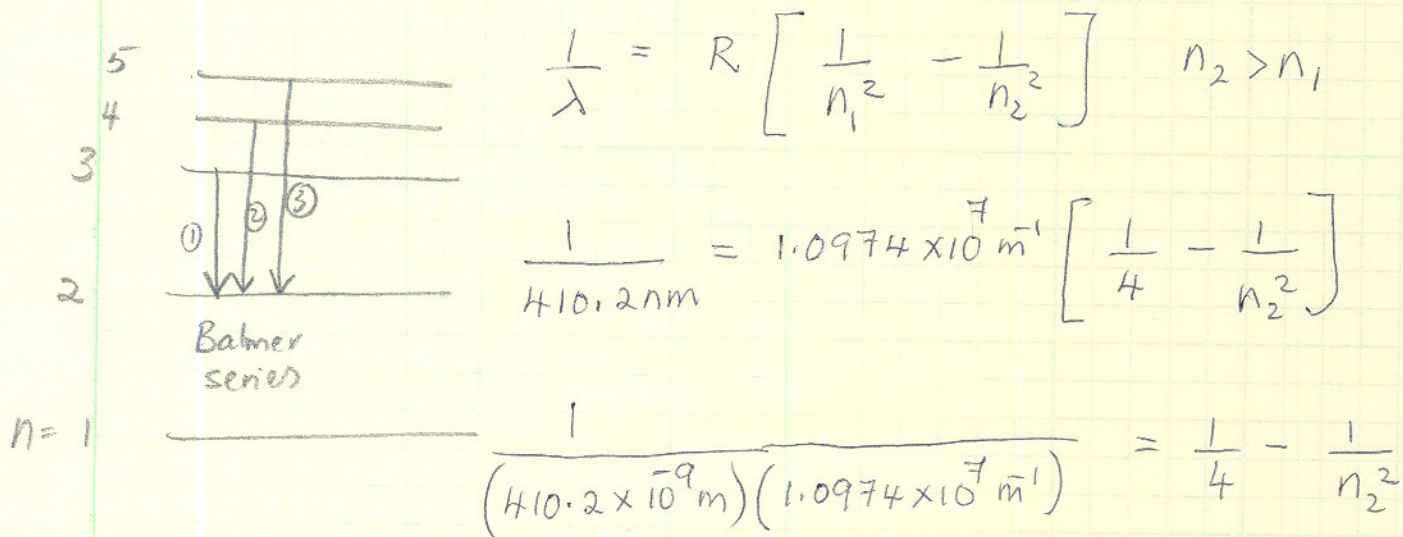 5
4
3
2
n= 1
① ② ③
Balmer
series
1/λ = R [ 1/n₁² - 1/n₂² ] n₂ > n₁
1/410.2nm = 1.0974 ×10⁷ m⁻¹ [ 1/4 - 1/n₂² ]
1/(410.2 × 10⁻⁹ m)(1.0974 ×10⁷ m⁻¹) = 1/4 - 1/n₂²